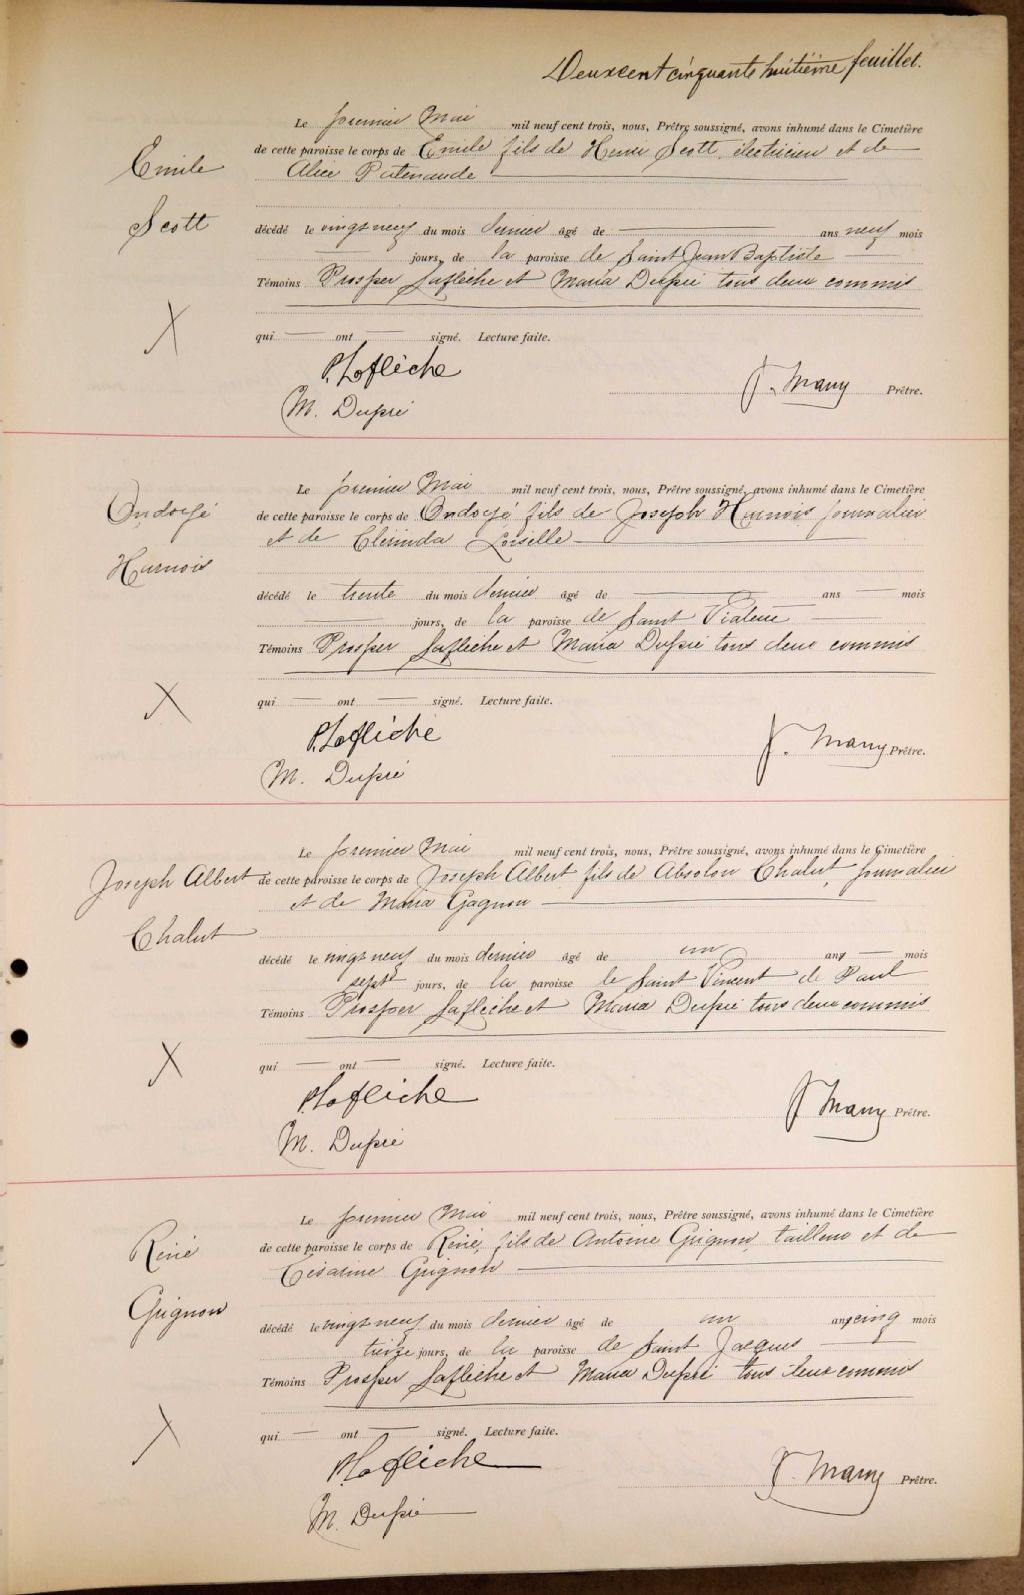 Deuxcent cinquante huitième feuillet.
Le premier Mai mil neuf cent trois, nous, Prêtre soussigné, avons inhumé dans le Cimetière
Emile de cette paroisse le corps de Emile fils de Henri Scott, électricien et de
Alice Patenaude
Scott décédé le vingt neuf du mois dernier âgé de ans neuf mois
jours, de la paroisse de Saint Jean Baptiste
Témoins Prosper Laflèche et Maria Dupré tous deux commis
X qui ont signé. Lecture faite.
P. Laflèche
J. Many Prêtre.
M. Dupré
Le premier Mai mil neuf cent trois, nous, Prêtre soussigné, avons inhumé dans le Cimetière
Ondoyé de cette paroisse le corps de Ondoyé fils de Joseph Harnois journalier
et de Clérinda Loiselle
Harnois
décédé le trente du mois dernier âgé de ans mois
jours, de la paroisse de Saint Viateur
Témoins Prosper Laflèche et Maria Dupré tous deux commis
X qui ont signé. Lecture faite.
P. Laflèche
J. Many Prêtre.
M. Dupré
Le premier Mai mil neuf cent trois, nous, Prêtre soussigné, avons inhumé dans le Cimetière
Joseph Albert de cette paroisse le corps de Joseph Albert fils de Absolon Chalut, journalier
et de Maria Gagnon
Chalut
décédé le vingt neuf du mois dernier âgé de un ans mois
sept jours, de la paroisse le Saint Vincent de Paul
Témoins Prosper Laflèche et Maria Dupré tous deux commis
X qui ont signé. Lecture faite.
P. Laflèche
J. Many Prêtre.
M. Dupré
Le premier Mai mil neuf cent trois, nous, Prêtre soussigné, avons inhumé dans le Cimetière
René de cette paroisse le corps de René, fils de Antoine Grignon, tailleur et de
Césarine Grignon
Grignon
décédé le vingt neuf du mois dernier âgé de un ans cinq mois
treize jours, de la paroisse de Saint Jacques
Témoins Prosper Laflèche et Maria Dupré tous deux commis
X qui ont signé. Lecture faite.
P. Laflèche
J. Many Prêtre.
M. Dupré